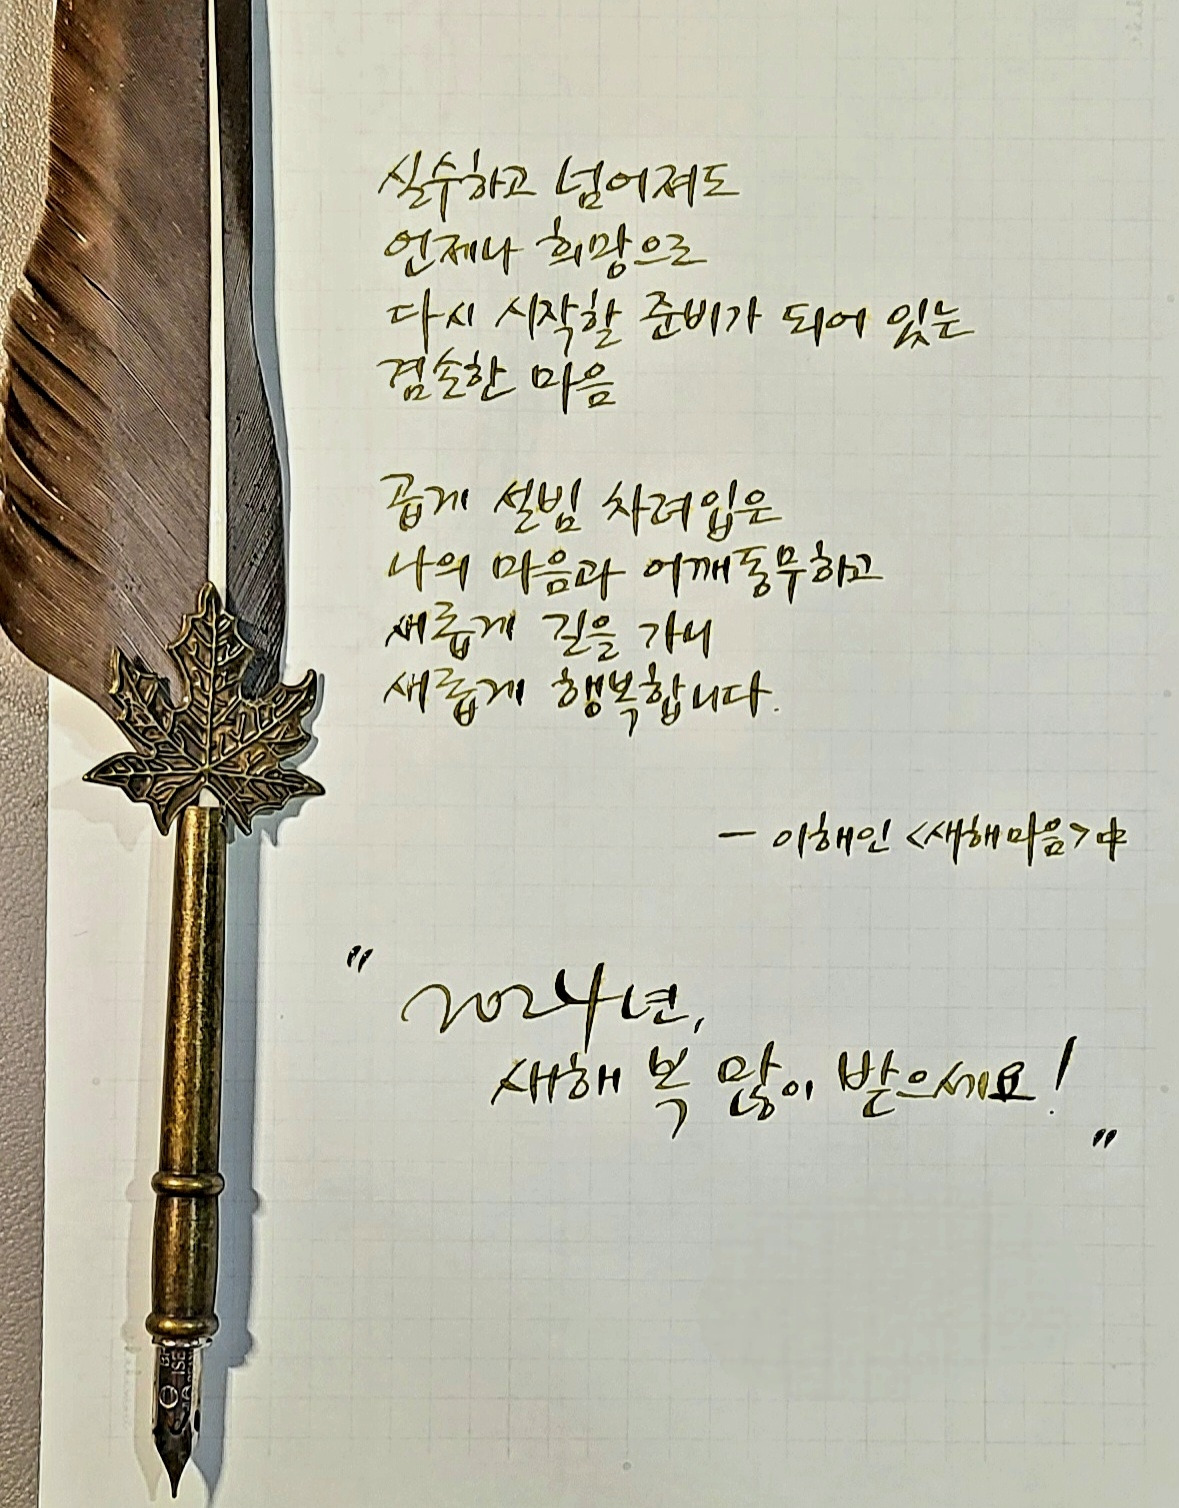 실수하고 넘어져도
언제나 희망으로
다시 시작할 준비가 되어 있는
겸손한 마음
곱게 설빔 차려입은
나의 마음과 어깨동무하고
새롭게 길을 가니
새롭게 행복합니다.
- 이해인 <새해마음> 中
"2024년,
새해 복 많이 받으세요!"